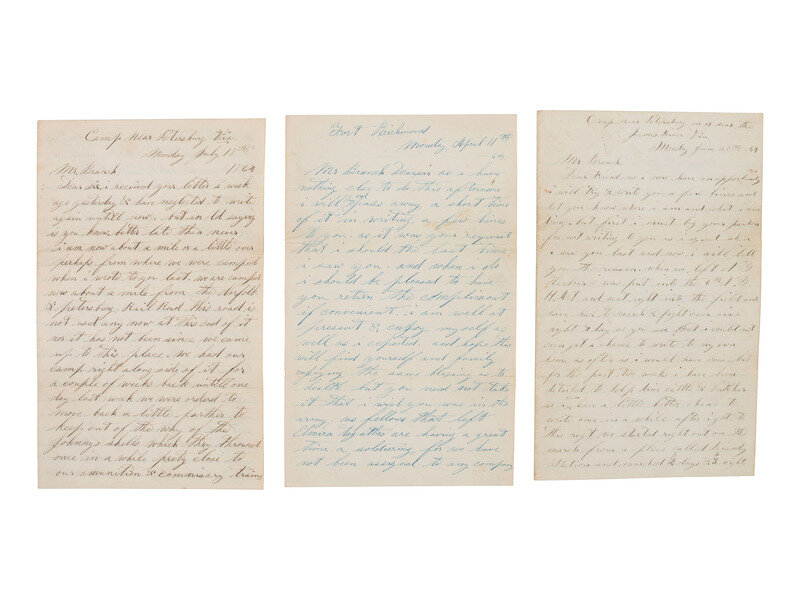 Camp Near Petersburg Via
Monday July 18th
1864
Mr Branch
Dear sir i received your letter a week
ago yesterday & have neglected to write
again untill now. but an old saying
is you know better late then never
i am now about a mile or a little over
perhaps from where we were camped
when i wrote to you last. we are camped
now about a mile from the Norfolk
& petersburg Rail Road this road is
not used any now at this end of it
nor it has not been since we came
up to this place. we had our
camp right along side of it for
a couple of weeks back untill one
day last week we were ordered to
move back a little farther to
keep out of the way of the
Johnnys shells which they throwed
once in a while prety close to
our amunition & commissery trains
Fort Richmond
Monday April 11th
64
Mr Branch Dear sir as i have
nothing else to do this afternoon
i will pass away a short time
of it in writing a few lines
to you. as it was your request
that i should the last time
i saw you. and when i do
i should be pleased to have
you return the compliment
if convenient. i am well at
present & enjoy my self as
well as i expected. and hope this
will find yourself and family
enjoying the same blessing
health. but you need not take
it that i wish you was in the
army. us fellows that left
Elmira together are having a great
time a soldiering for we have
not been assigned to any company
Camp near Petersburg and near the
James River Via
Monday June 20th 64
Mr Branch
Dear Friend as i now have an opportunity
i will try & write you a few lines and
let you know where i am and what i am
doing. but first i must beg your pardon
for not writing to you as i agreed when
i saw you last and now i will tell
you the reason. when we left
we was put into the 6th N.Y.
H. Art and sent right into the field and
have had to march & fight ever since
night & day so you see that i could not
even get a chance to write to my own
home as often as i would have done but
for the past two weeks i have been
detailed to help drive cattle & butcher
so i have a little better chance to
write once in a while after i got to
the regt we started right out on the
march from a place called
Station and marched 2 days & 2 night